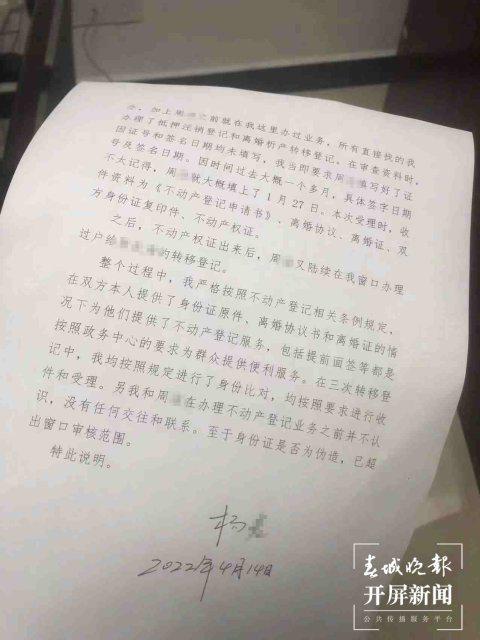 办，加上周 之前就在我这里办过业务，所有直接找的我
办理了抵押注销登记和离婚析产转移登记。在审查资料时，
因证号和签名日期均未填写，我当即要求周 填写好了证
号及签名日期。因时间过去大概一个多月，具体签字日期
不大记得，周 就大概填上了1月27日。本次受理时，收
件资料为《不动产登记申请书》、离婚协议、离婚证、双
方身份证复印件、不动产权证。
之后，不动产权证出来后，周 又陆续在我窗口办理
过户给 的转移登记。
整个过程中，我严格按照不动产登记相关条例规定，
在双方本人提供了身份证原件、离婚协议书和离婚证的情
况下为他们提供了不动产登记服务，包括提前画签等都是
按照政务中心的要求为群众提供便利服务。在三次转移登
记中，我均按照规定进行了身份比对，均按照要求进行收
件和受理。另我和周 在办理不动产登记业务之前并不认
识，没有任何交往和联系。至于身份证是否为伪造，已超
出窗口审核范围。
特此说明。
杨
2022年4月14日
春城晚报
开屏新闻
公共传播服务平台